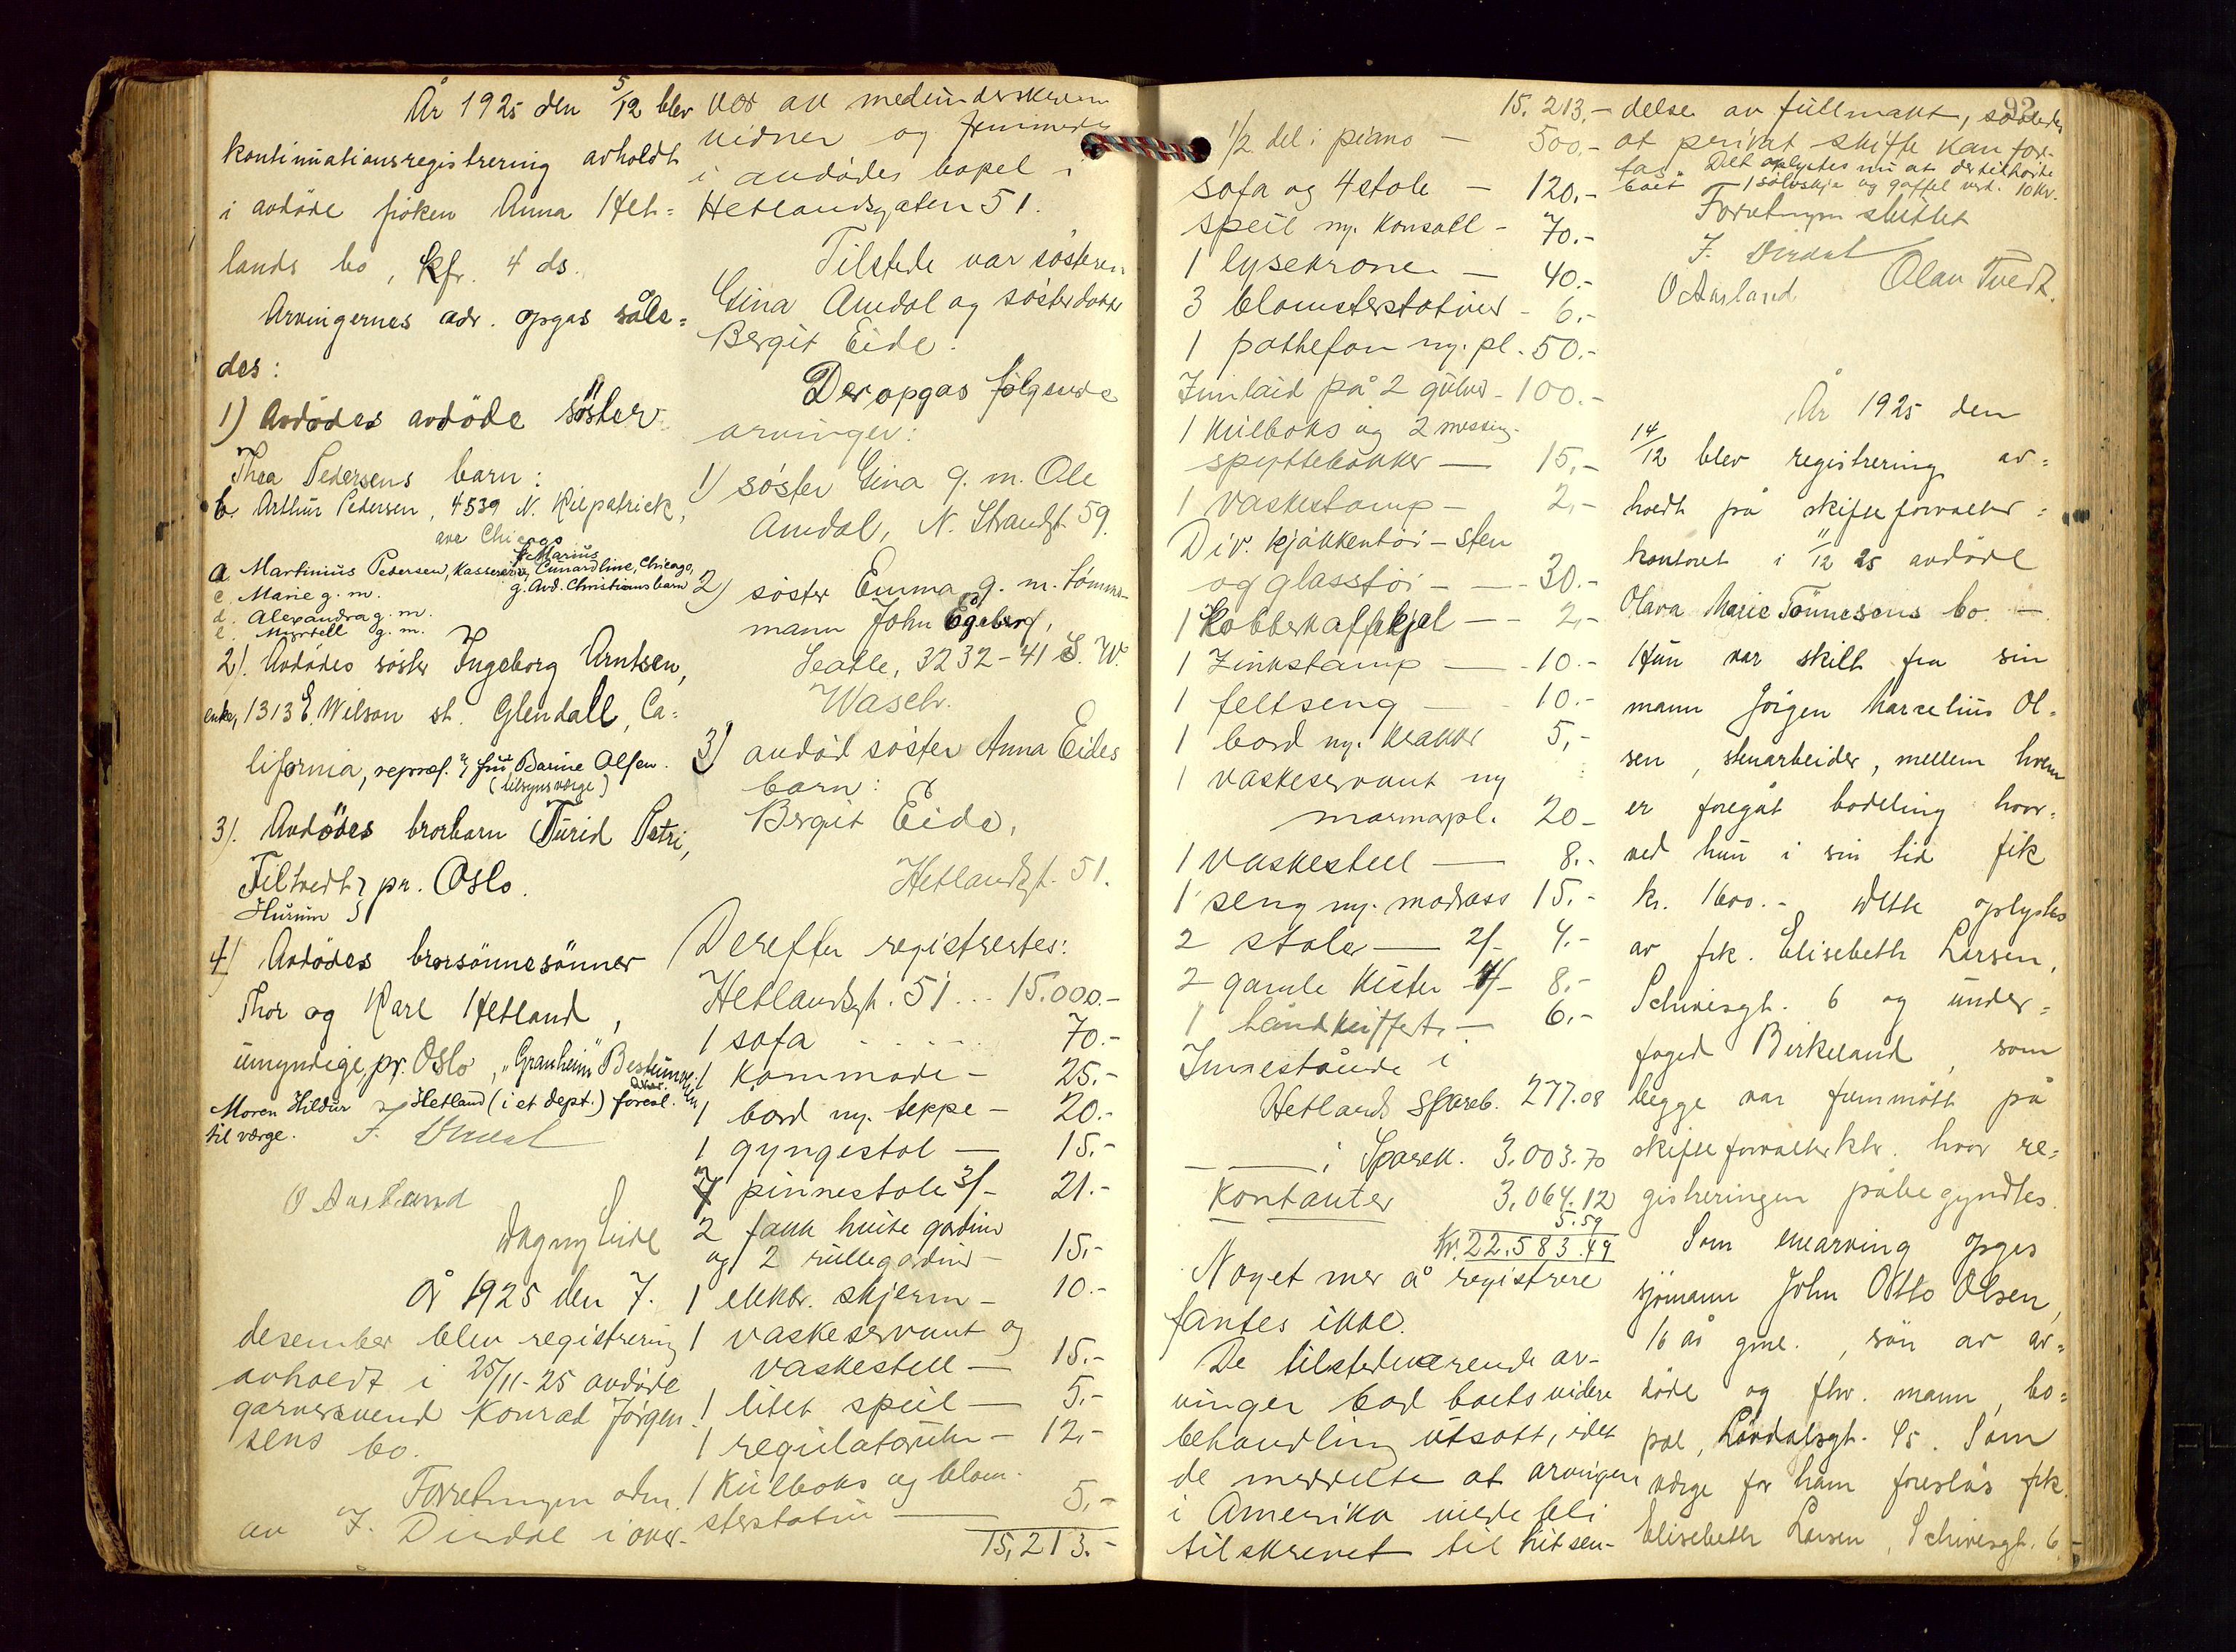 År 1925 den 5/12 blev
kontinuationsregistrering avholdt
i avdöde fröken Anna Het=
lands bo, kfr. 4 ds.
Arvingernes adr. opgas såle=
des:
1) Avdödes avdöde söster
Thea Pedersens barn:
b. Arthur Pedersen, 4539 N. Kilpatrick,
ave Chicago
a Martinius Pedersen, kasserer v. Cunardline, Chicago,
f. Marius
g. Avd. Christians barn
c. Marie g. m.
d. Alexandra g. m.
e. Myrtell g. m.
2). Avdödes söster Ingeborg Arntsen,
enke, 1313 E. Wilson st. Glendall, Ca=
lifornia, repræs. v/ fru Barine Olsen.
(tilsynsværge)
3). Avdödes brorbarn Turid Petri,
Filtvedt, pr. Oslo.
Hurum
4) Avdödes brorsönnesönner
Thor og Karl Hetland,
umyndige, pr. Oslo, "Granheim" Bestum
Moren Hildur Hetland (i et dept.) foresl.
til værge. F. Dirdal
O Aasland
Dagny Eide
År 1925 den 7.
desember blev registrering
avholdt i 25/11-25 avdöde
garversvend Konrad Jørgen-
sens bo.
Forretningen adm.
av F. Dirdal i over-
vær av medunderskrevne
vidner og fremmedes
i avdödes bopel i
Hetlandsgaten 51.
Tilstede var søsteren
Gina Amdal og søsterdatter
Bergit Eide.
Der opgas følgende
arvinger:
1) søster Gina g. m. Ole
Amdal, N. Strandgt 59.
2) søster Emma g. m. tømmer-
mann John Egeberg,
Seatle, 3232-41 S. W.
Wasch.
3) avdød søster Anna Eides
barn:
Bergit Eide,
Hetlandsgt. 51.
Derefter registrertes:
Hetlandsgt. 51 ... 15.000.-
1 sofa ..... 70.-
1 kommode - 25.-
1 bord ng. teppe - 20.-
1 gyngestol — 15.-
7 pinnestole 3/- 21.-
2 fakk hvite gardiner
og 2 rullegardiner - 15.-
1 elektr. skjerm - 10.-
1 vaskeservant og
vaskestell — 15.-
1 litet speil — 5.-
1 regulatoruhr - 12.-
1 kulboks og blom-
sterstativ — 5.-
15,213.-
15.213.-
1/2 del i piano — 500.-
sofa og 4 stole — 120.-
speil ng. konsoll - 70.-
1 lysekrone — 40.-
3 blomsterstativer - 6.-
1 pathefon ng. pl. 50.-
Innlaid på 2 gulver - 100.-
1 kulboks og 2 messing-
spyttebakker — 15.-
1 vaskestamp — 2.-
Div. kjøkkentøi - sten
og glasstøi — 30.-
1 kobberkaffekjel — 2.-
1 Zinkstamp — 10.-
1 feltseng — 10.-
1 bord ng. krakker 5.-
1 vaskeservant ng
marmorpl. 20.-
1 vaskestell — 8.-
1 seng ng. madrass 15.-
2 stole — 2/- 4.-
2 gamle kister 4/- 8.-
1 håndkuffert — 6.-
Innestående i
Hetlands Spareb. 277.08
— — i Sparek. 3.003.70
Kontanter 3.064.12
5.59
Kr. 22.583.49
Noget mer å registrere
fantes ikke.
De tilstedeværende ar-
vinger bad boets videre
behandling utsatt, idet
de meddelte at arvingen
i Amerika vilde bli
tilskrevet til hitsen-
92
delse av fullmakt, således
at privat skifte kan fore-
tas. Det oplystes nu at der tilhørte
boet 1 sølvskje og gaffel verd. 10 kr.
Forretningen sluttet
F. Dirdal
O Aasland Olav Tvedt.
År 1925 den
14/12 blev registrering av=
holdt på skifteforvalter=
kontoret i 11/12 25 avdöde
Olava Marie Tönnesens bo. —
Hun var skilt fra sin
mann Jörgen Marcelius Ol=
sen, stenarbeider, mellem hvem
er foregåt bodeling hvor=
ved hun i sin tid fik
kr. 1600.- Dette oplystes
av frk. Elisebeth Larsen,
Schivesgt. 6 og under=
foged Birkeland, som
begge var fremmött på
skifteforvalterktr. hvor re=
gistreringen påbegyndtes.
Som enearving opges
sjömann John Otto Olsen,
16 år gml., sön av av=
döde og fhv. mann, bo=
pæl, Lövdalsgt. 45. Som
værge for ham foreslås frk.
Elisebeth Larsen, Schivesgt. 6.